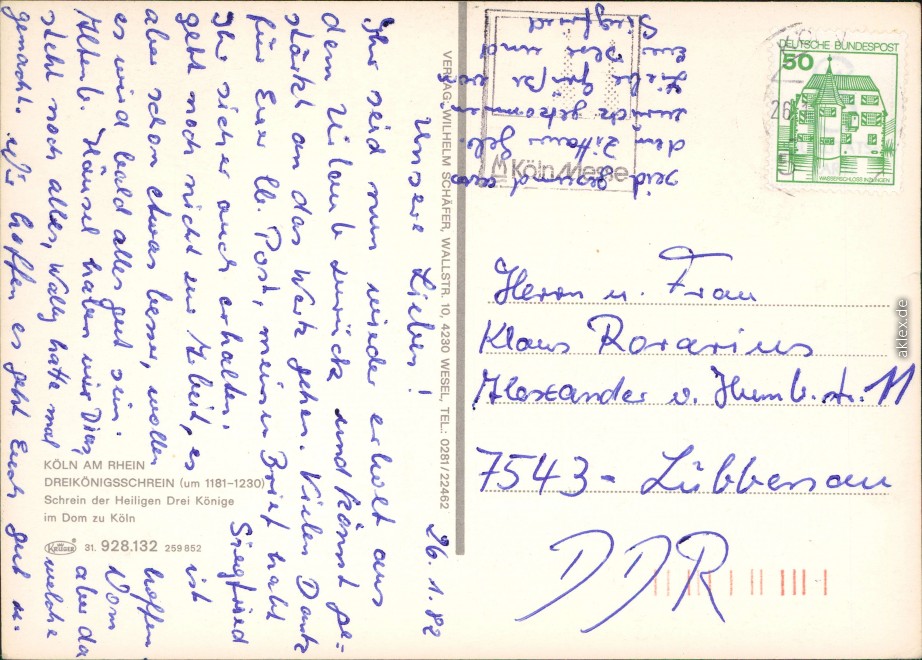 Unsere Lieben! 26.1.82
Ihr seid nun wieder erholt aus
dem Urlaub zurück und könnt ge-
stärkt an das Werk gehen. Vielen Dank
für Eure lb. Post, meinen Brief habt
Ihr sicher auch erhalten. Siegfried
geht noch nicht zur Arbeit, es ist
aber schon etwas besser, wollen hoffen
es wird bald alles gut sein. Vom
Altenb. Häusel haben wir Dias, aber da
steht noch alles, Wally hatte mal welche
gemacht. Wir hoffen es geht Euch gut u.
seid gesund aus
dem Zittauer Geb.
zurück gekommen
Liebe Grüße
und
Siegfried
VERLAG WILHELM SCHÄFER, WALLSTR. 10, 4230 WESEL, TEL.: 0281/22462
KÖLN AM RHEIN
DREIKÖNIGSSCHREIN (um 1181–1230)
Schrein der Heiligen Drei Könige
im Dom zu Köln
KRÜGER 31. 928.132 259852
KölnMesse
DEUTSCHE BUNDESPOST
50
WASSERSCHLOSS INZLINGEN
26
Herrn u. Frau
Klaus Rorarius
Alexander v. Humb. str. 11
7543 - Lübbenau
DDR
aklex.de